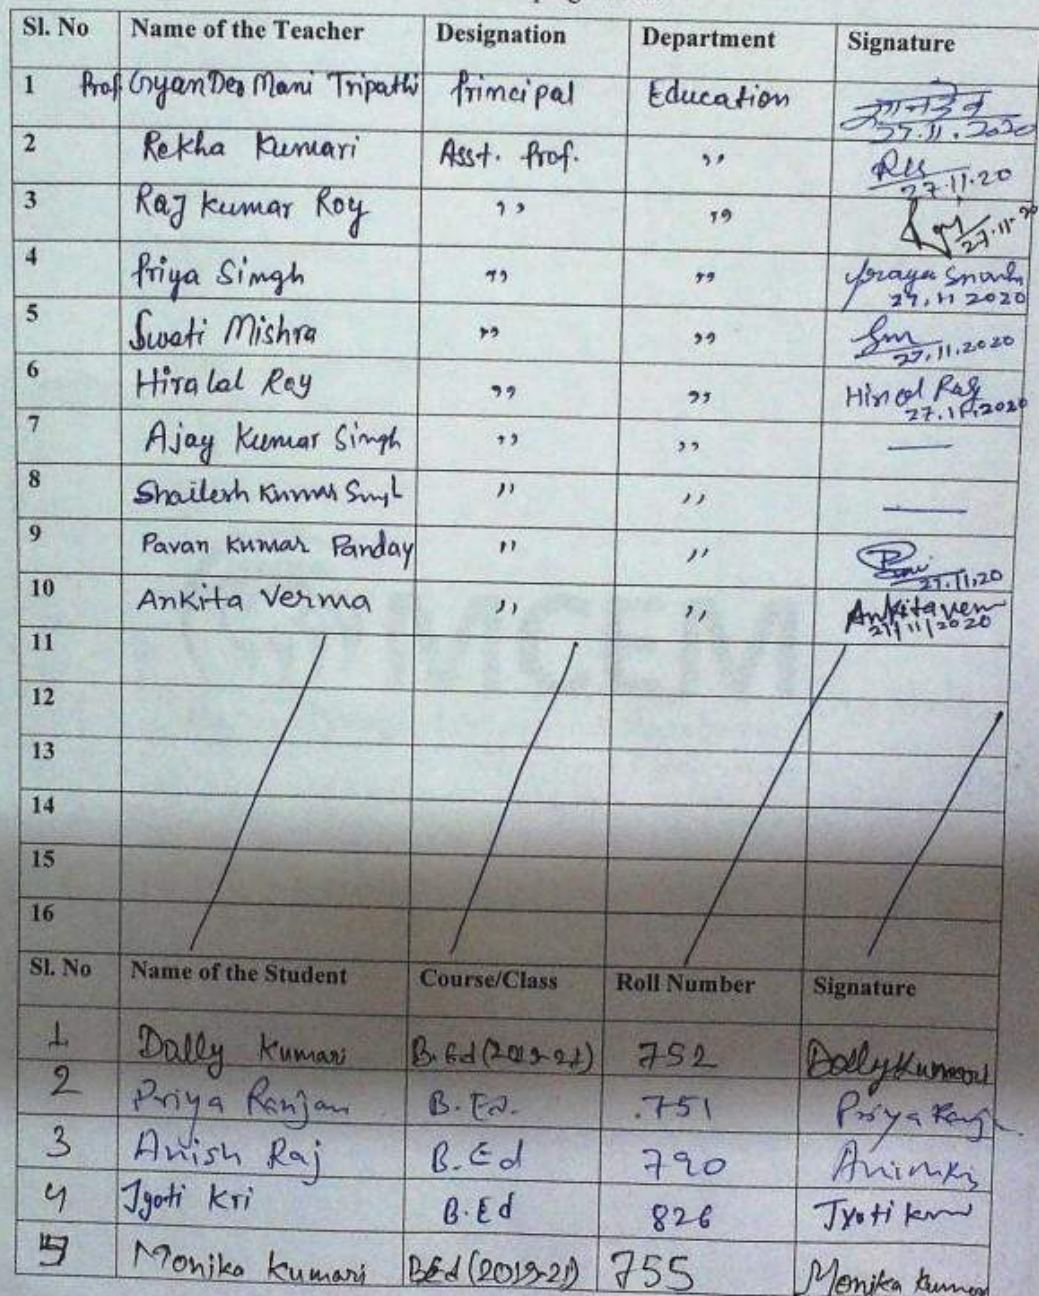 Sl. No Name of the Teacher Designation Department Signature
1 Prof. Gyan Deo Mani Tripathi Principal Education ज्ञानदेव 27.11.2020
2 Rekha Kumari Asst. Prof. ,, 27.11.20
3 Raj Kumar Roy ,, ,, 27.11.20
4 Priya Singh ,, ,, 27.11.2020
5 Swati Mishra ,, ,, Sm 27.11.2020
6 Hiralal Ray ,, ,, Ray 27.11.2020
7 Ajay Kumar Singh ,, ,, —
8 Shailesh Kumar Singh ,, ,, —
9 Pavan Kumar Panday ,, ,, 27.11.20
10 Ankita Verma ,, ,, Ankita 27/11/2020
11
12
13
14
15
16
MCEM
Sl. No Name of the Student Course/Class Roll Number Signature
1 Dally Kumari B.Ed (2019-21) 752 Dolly Kumari
2 Priya Ranjan B.Ed. 751 Priya
3 Anish Raj B.Ed 790
4 Jyoti Kri B.Ed 826 Jyoti
5 Monika Kumari B.Ed (2019-21) 755 Monika Kumari